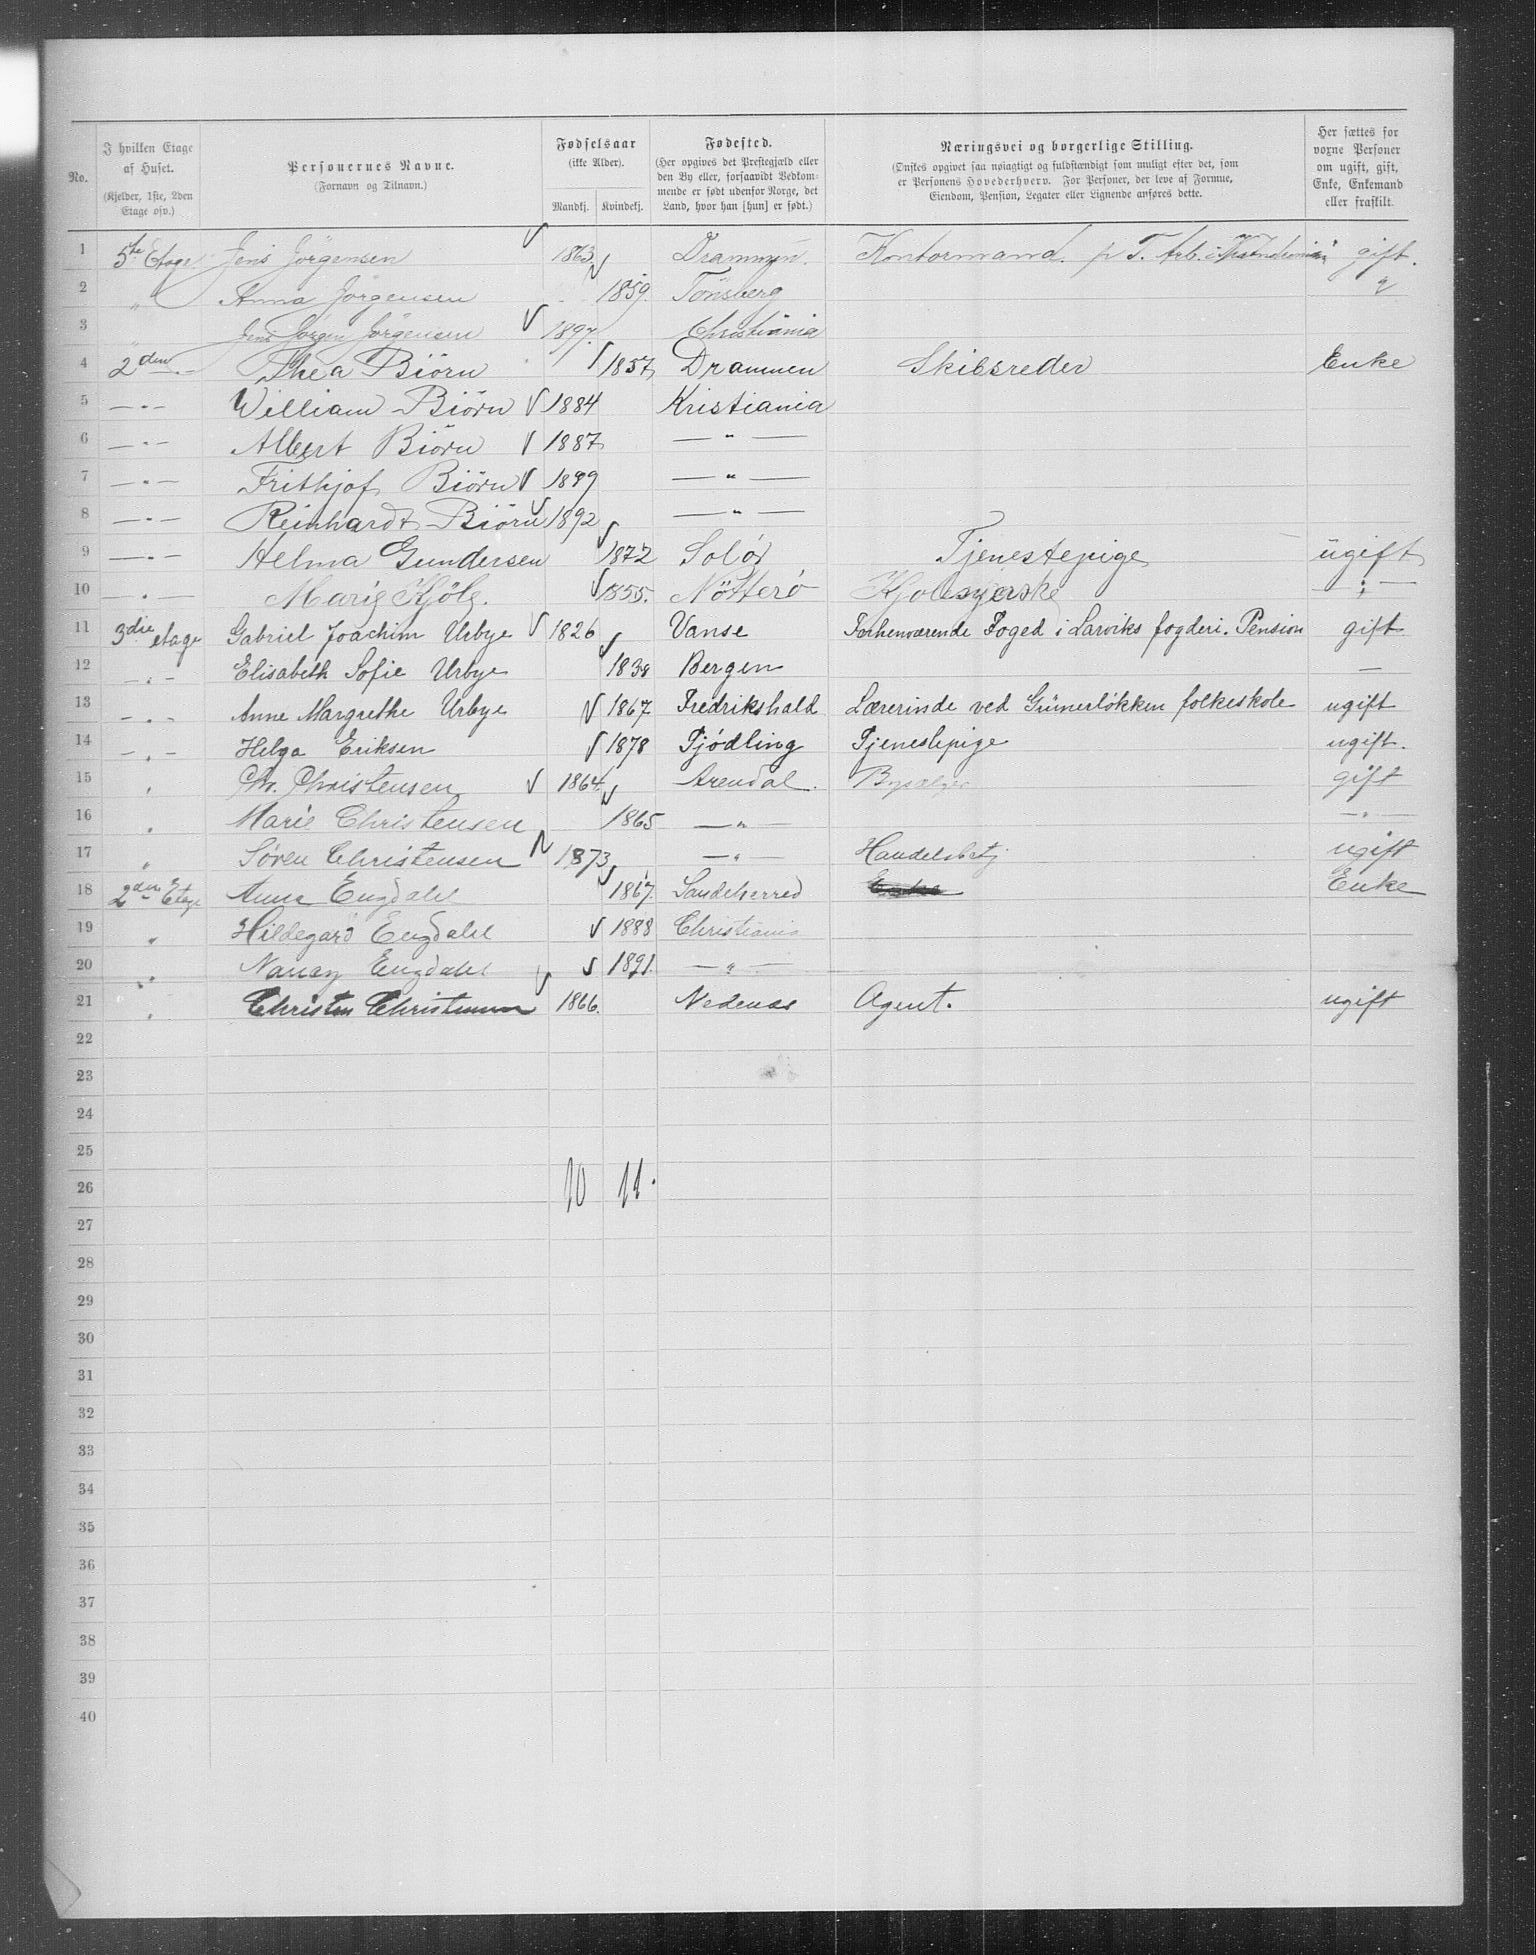 No.
I hvilken Etage af Huset.
(Kjelder, 1ste, 2den Etage osv.)
Personernes Navne.
(Fornavn og Tilnavn.)
Fødselsaar
(ikke Alder).
Mandkj. Kvindekj.
Fødested.
(Her opgives det Prestegjæld eller den By eller, forsaavidt Vedkommende er født udenfor Norge, det Land, hvor han [hun] er født.)
Næringsvei og borgerlige Stilling.
(Ønskes opgivet saa nøiagtigt og fuldstændigt som muligt efter det, som er Personens Hovederhverv. For Personer, der leve af Formue, Eiendom, Pension, Legater eller Lignende anføres dette.
Her sættes for voxne Personer om ugift, gift, Enke, Enkemand eller fraskilt.
1 5te Etage Jens Jörgensen 1863 Drammen. Kontormand. p. T. Arb. i gift.
2 " Anna Jörgensen 1859 Tönsberg "
3 " Jens Jörgen Jörgensen 1897 Christiania
4 2den Thea Biörn 1857 Drammen Skibsreder Enke
5 —"— William Biörn 1884 Kristiania
6 —"— Albert Biörn 1887 —"—
7 —"— Frithjof Biörn 1889 —"—
8 —"— Reinhardt Biörn 1892 —"—
9 —"— Helma Gundersen 1872 Solör Tjenestepige ugift
10 —"— Marie Kjölg. 1855. Nötterö Kjolesyerske —"—
11 3die etage Gabriel Joachim Urbye 1826 Vanse Forhenværende Foged i Larviks fogderi. Pension gift
12 —"— Elisabeth Sofie Urbye 1838 Bergen —
13 —"— Anne Margrethe Urbye 1867 Fredrikshald Lærerinde ved Grünerløkken folkeskole ugift
14 —"— Helga Eriksen 1878 Tjödling Tjenestepige ugift.
15 " Chr. Christensen 1864 Arendal. gift
16 " Marie Christensen 1865 —"— —"—
17 " Søren Christensen 1873 —"— Handelsbetj ugift
18 2den Etage Anna Engdahl 1867. Sandeherred Enke Enke
19 " Hildegard Engdahl 1888 Christiania
20 " Nancy Engdahl 1891. —"—
21 " Christen Christensen 1866. Nedenæs Agent. ugift
22
23
24
25
26 10 11.
27
28
29
30
31
32
33
34
35
36
37
38
39
40